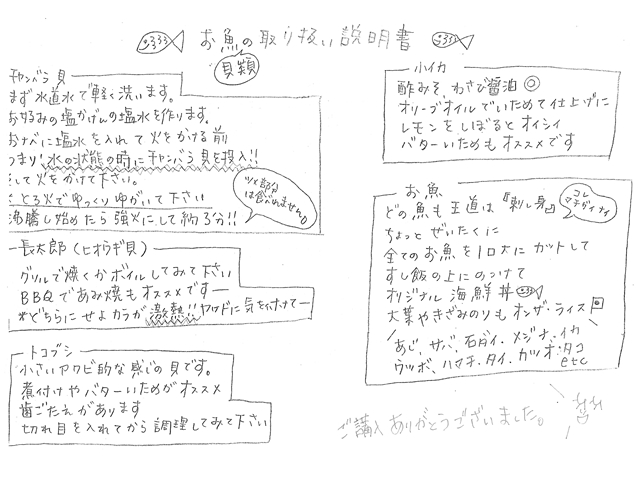 お魚の取り扱い説明書
貝類
チャンバラ貝
まず水道水で軽く洗います。
お好みの塩かげんの塩水を作ります。
おナベに塩水を入れて火をかける前
つまり!水の状態の時にチャンバラ貝を投入!!
そして火をかけて下さい。
とろ火でゆっくりゆがいて下さい
沸騰し始めたら強火にして約3分!!
ツメ部分
は食べれません。
長太郎(ヒオウギ貝)
グリルで焼くかボイルしてみて下さい
BBQであみ焼もオススメですー
*どちらにせよカラが激熱!!ヤケドに気を付けてー
トコブシ
小さいアワビ的な感じの貝です。
煮付けやバターいためがオススメ
歯ごたえがあります
切れ目を入れてから調理してみて下さい
小イカ
酢みそ、わさび醤油◎
オリーブオイルでいためて仕上げに
レモンをしぼるとオイシイ
バターいためもオススメです
お魚
どの魚も王道は『刺し身』
コレ
マチガイナイ
ちょっとぜいたくに
全てのお魚を1口大にカットして
すし飯の上にのっけて
オリジナル海鮮丼
大葉やきざみのりもオンザ・ライス
あじ、サバ、石ダイ、メジナ、イカ
ウツボ、ハマチ、タイ、カツオ、タコ
etc
ご購入ありがとうございました。